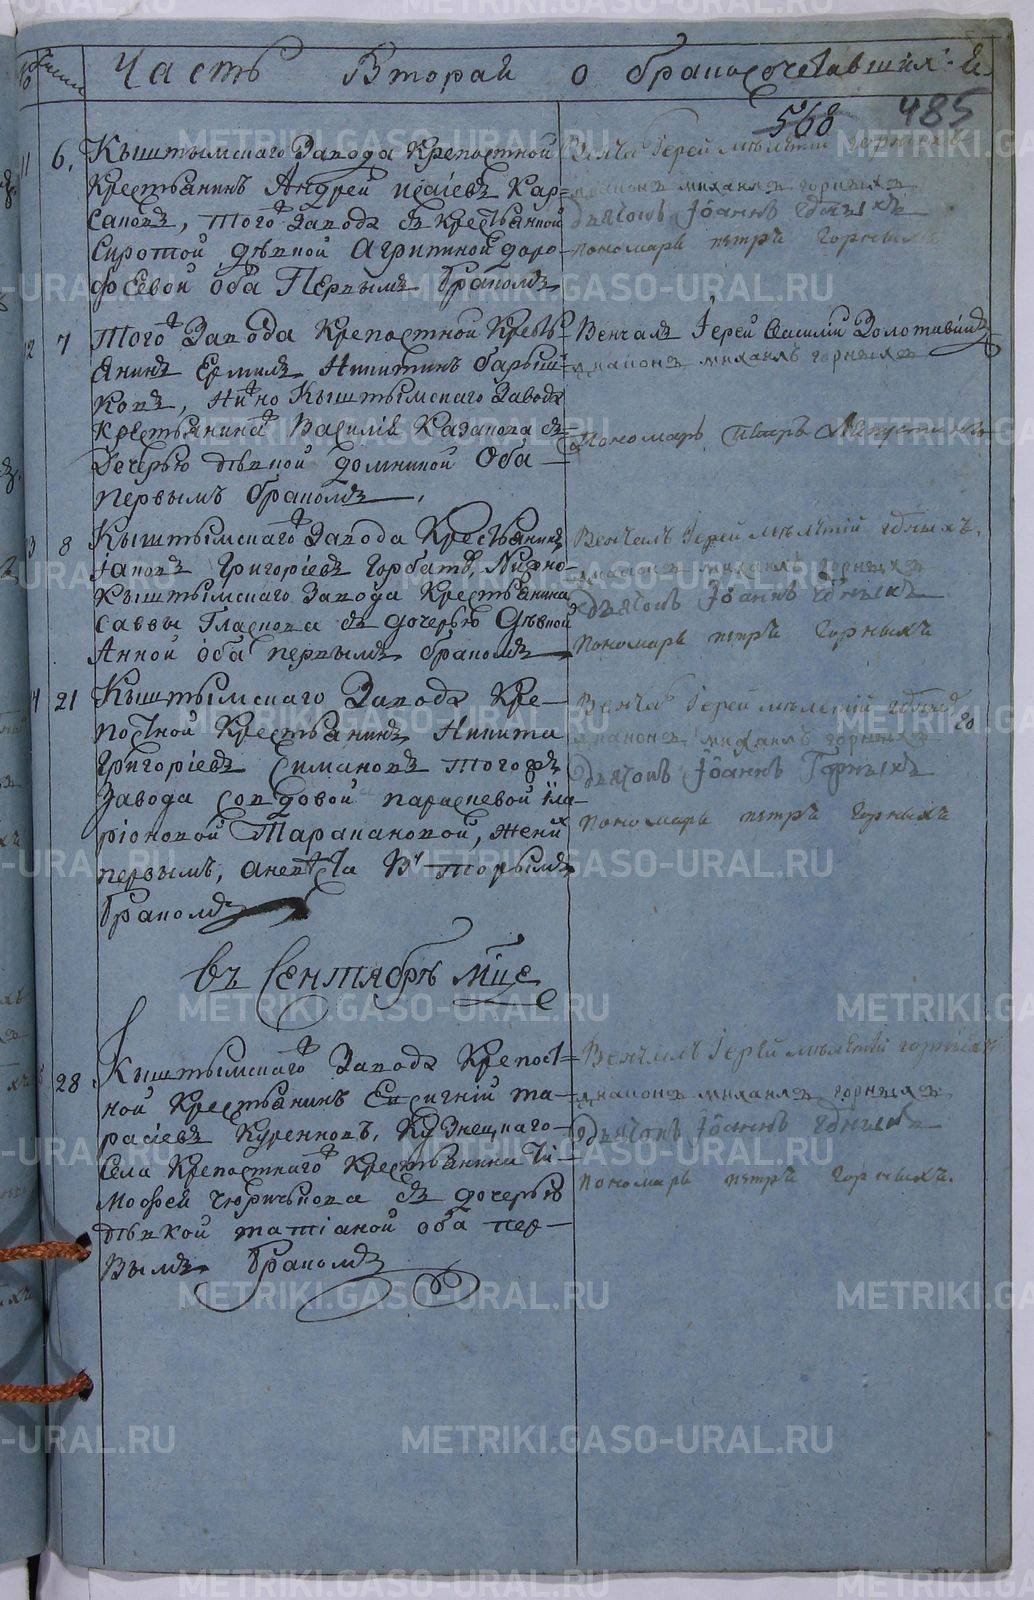 Часть Вторая о бракосочетавшихся
568 485
11 6. Кыштымскаго Завода Крепостной
Крестьянинъ Андрей Исаіевъ Кар-
сановъ, того Завода съ крестьянкой
Сиротой девкой Агрипиной Доро-
феевой оба Первымъ бракомъ
Венча Іерей Мелетій Горныхъ
диаконъ михаилъ горныхъ
Дьячокъ Іоаннъ Горныхъ
пономарь петръ Горныхъ
12 7 Того Завода Крепостной Кресть-
янинъ Ермилъ Никитинъ барыш-
ковъ, Нижно Кыштымскаго Завода
крестьянина Василія Казакова съ
дечерью девкой домникой оба
первымъ бракомъ.
Венчалъ Іерей Василій Золотавинъ
диаконъ михаилъ горныхъ
Пономарь
13 8 Кыштымскаго Завода Крестьянинъ
Іаковъ Григоріевъ Горбатъ, Нижно
Кыштымскаго Завода Крестьянина
Саввы Гласкова съ дочерью девкой
Анной оба первымъ бракомъ
Венчалъ Іерей Мелетій Горныхъ.
диаконъ михаилъ горныхъ
Дьячокъ Іоаннъ Горныхъ
пономарь петръ Горныхъ
14 21 Кыштымскаго Завода Кре-
постной Крестьянинъ Никита
Григоріевъ Симановъ тогожъ
Завода совдовой параскевой Ила-
ріоновой Таракановой, жених
первымъ, а невеста Вторымъ
бракомъ
Венча Іерей Мелетій Горных
20
диаконъ михаилъ горныхъ
Дьячокъ Іоаннъ Горныхъ
пономарь петръ Горныхъ
въ Сентябрѣ мце
28 Кыштымскаго Завода Крепост-
ной Крестьянинъ Евсигній та-
расіевъ Куренковъ, Кузнецкаго
Села Крепостнаго Крестьянина Ти-
мофея съ дочерью
девкой татіаной оба пер-
вымъ бракомъ
Венчалъ Іерей Мелетій горныхъ
диаконъ михаилъ горныхъ
Дьячокъ Іоаннъ Горныхъ
пономарь петръ Горныхъ.
METRIKI.GASO-URAL.RU